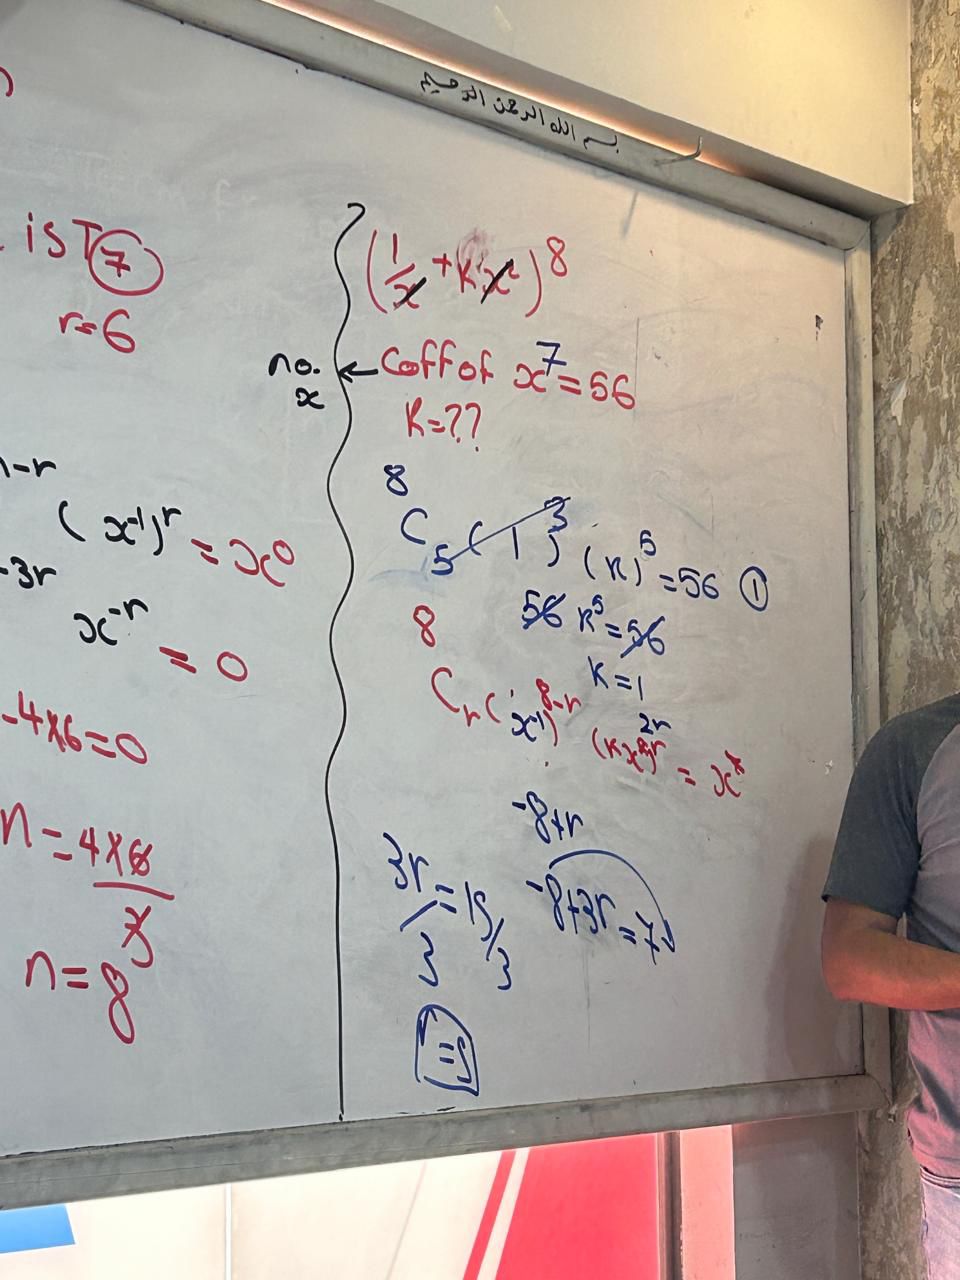 بسم الله الرحمن الرحيم
is T7
r=6
n-r
(x⁻¹)ʳ = x⁰
-3r
x⁻ʳ
= 0
-4×6=0
n = 4×6
3
n=8
(1/x + kx²)⁸
no. x ← Coff of x⁷ = 56
K=??
⁸C₅ (1)³ (k)⁵ = 56 ①
56 k⁵ = 56
k=1
⁸Cᵣ (x⁻¹)⁸⁻ʳ (kx²)ʳ = x⁷
2r
-8+r
-8+3r = 7
3r/3 = 15/3
r=5